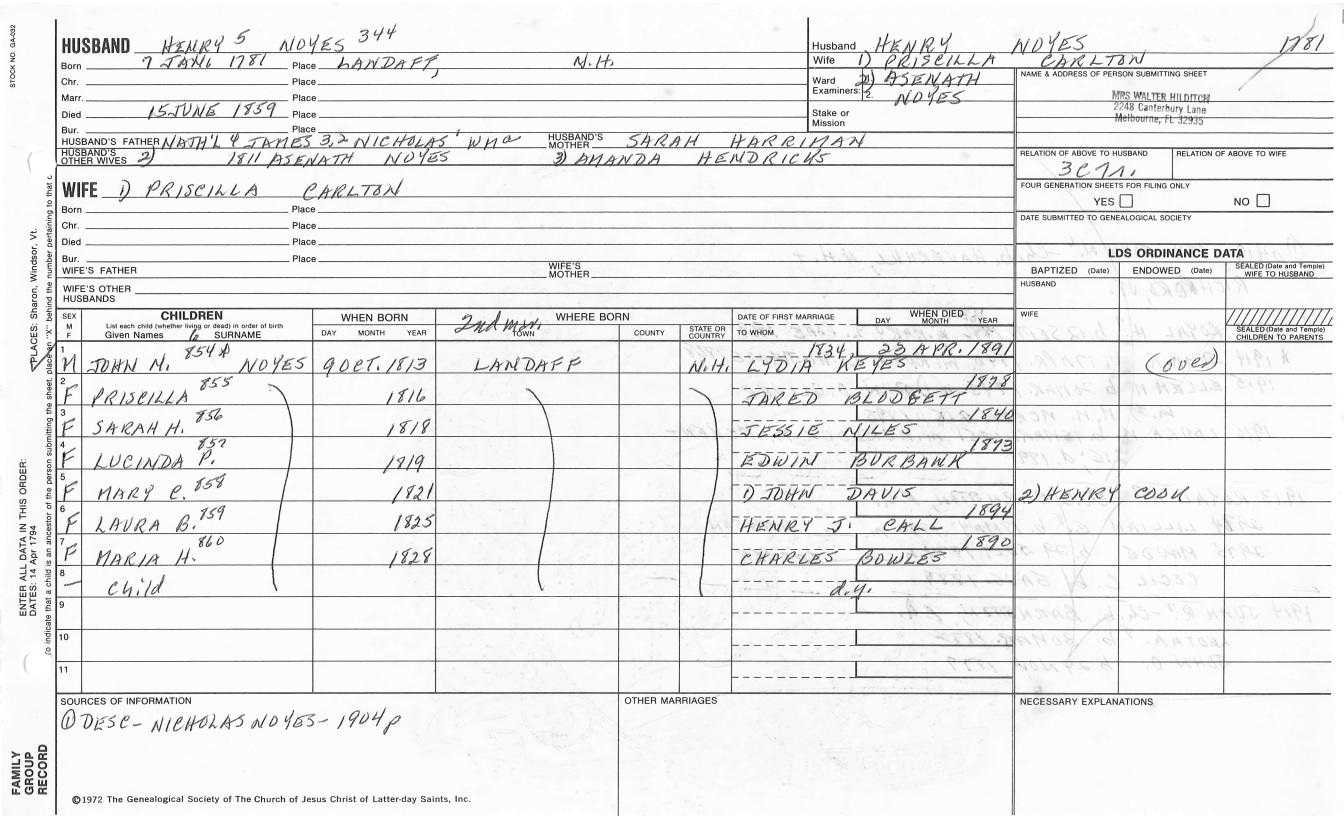 STOCK NO. GA-032
HUSBAND HENRY 5 NOYES 344
Born 7 JAN. 1781 Place LANDAFF, N.H.
Chr. Place
Marr. Place
Died 15 JUNE 1859 Place
Bur. Place
HUSBAND'S FATHER NATH'L 4 JAMES 3,2 NICHOLAS ' HUSBAND'S MOTHER SARAH HARRIMAN
HUSBAND'S OTHER WIVES 2) 1811 ASENATH NOYES 3) AMANDA HENDRICKS
Husband HENRY NOYES 1781
Wife 1) PRISCILLA CARLTON
Ward Examiners: 2) ASENATH
2. NOYES
Stake or Mission
NAME & ADDRESS OF PERSON SUBMITTING SHEET
MRS WALTER HILDITCH
2248 Canterbury Lane
Melbourne, FL 32935
RELATION OF ABOVE TO HUSBAND RELATION OF ABOVE TO WIFE
FOUR GENERATION SHEETS FOR FILING ONLY
YES NO
DATE SUBMITTED TO GENEALOGICAL SOCIETY
WIFE 1) PRISCILLA CARLTON
Born Place
Chr. Place
Died Place
Bur. Place
WIFE'S FATHER WIFE'S MOTHER
WIFE'S OTHER HUSBANDS
LDS ORDINANCE DATA
BAPTIZED (Date) ENDOWED (Date) SEALED (Date and Temple) WIFE TO HUSBAND
HUSBAND
WIFE
SEALED (Date and Temple) CHILDREN TO PARENTS
SEX M F
CHILDREN
List each child (whether living or dead) in order of birth
Given Names 6 SURNAME
WHEN BORN
DAY MONTH YEAR
2nd mar.
WHERE BORN
TOWN COUNTY STATE OR COUNTRY
DATE OF FIRST MARRIAGE
TO WHOM
WHEN DIED
DAY MONTH YEAR
1 M JOHN N. 854 NOYES 9 OCT. 1813 LANDAFF N.H. 1834, 23 APR. 1891 LYDIA KEYES (over)
2 F PRISCILLA 855 1816 1878 JARED BLODGETT
3 F SARAH H. 856 1818 1840 JESSIE NILES
4 F LUCINDA P. 857 1819 1873 EDWIN BURBANK
5 F MARY C. 858 1821 1) JOHN DAVIS 2) HENRY COOK
6 F LAURA B. 859 1825 1894 HENRY J. CALL
7 F MARIA H. 860 1828 1890 CHARLES BOWLES
8 — Child d.y.
9
10
11
SOURCES OF INFORMATION
① DESC - NICHOLAS NOYES - 1904 p
OTHER MARRIAGES
NECESSARY EXPLANATIONS
©1972 The Genealogical Society of The Church of Jesus Christ of Latter-day Saints, Inc.
FAMILY GROUP RECORD
ENTER ALL DATA IN THIS ORDER:
DATES: 14 Apr 1794
PLACES: Sharon, Windsor, Vt.
To indicate that a child is an ancestor of the person submitting the sheet, place an "X" behind the number pertaining to that c